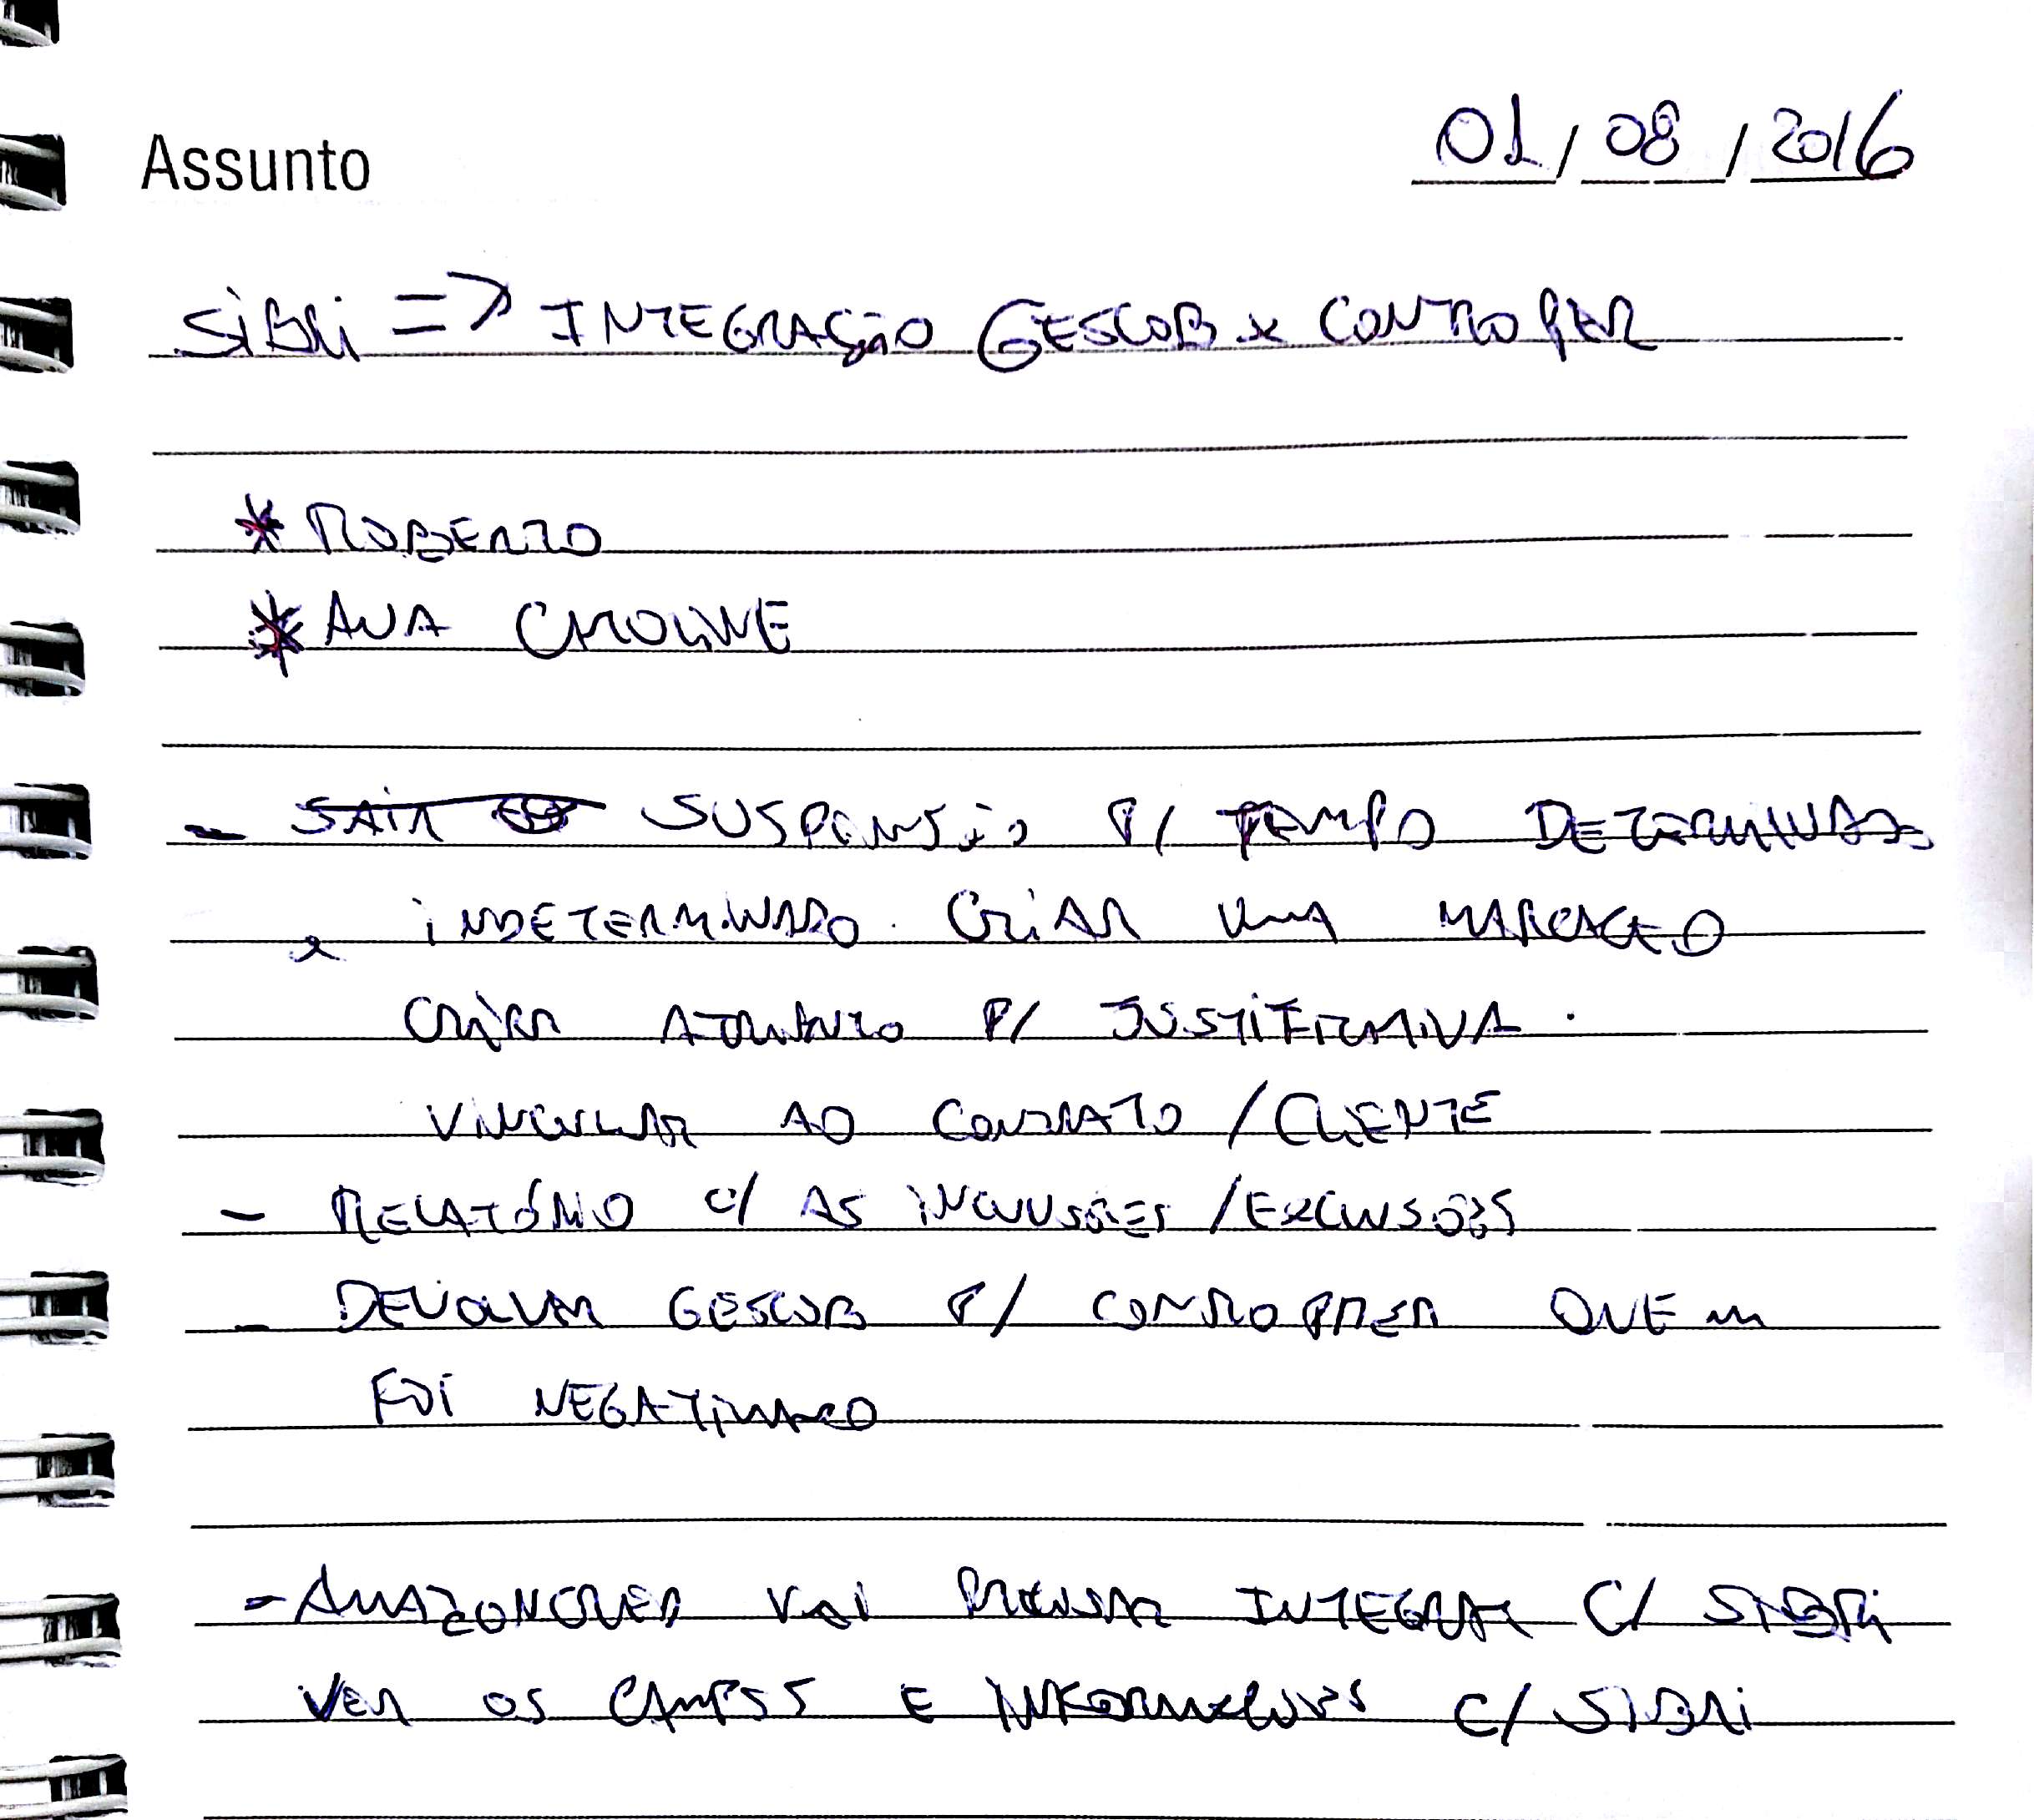 Assunto 01/08/2016
SiBRi => INTEGRAÇÃO GESCOB x CONTROPER
* ROBERTO
* ANA CAROLINE
- SAIR SUSPENSÃO P/ TEMPO DETERMINADO
INDETERMINADO. CRIAR UMA MARCAÇÃO
CRIAR ATRIBUTO P/ JUSTIFICATIVA.
VINCULAR AO CONTRATO / CLIENTE
- RELATÓRIO C/ AS INCLUSÕES / EXCLUSÕES
- DEVOLVER GESCOB P/ QUEM
FOI NEGATIVADO
- VAI PRECISAR INTEGRAR C/ SIBRi
VER OS CAMPOS E INFORMAÇÕES C/ SIBRi